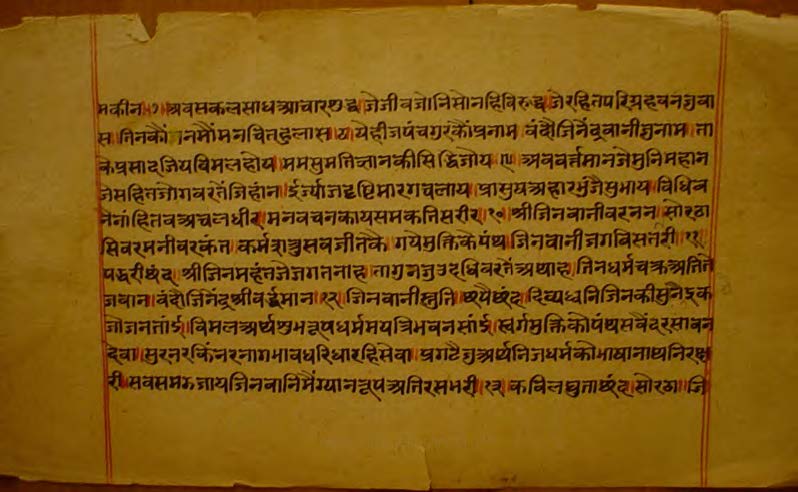 मकीन ।७। अवसकलसाधआचारशुद्ध जेजीवजोनिसोनहिविरुद्ध जेरहितपरिग्रहवनजुवा
स तिनकौं नमौंमनचितहुलास ८ येहीजपंचगुरकौंप्रनाम वंदौंजिनेंद्रवानीसुनाम ता
केप्रसादजियविमलहोय ममसुमतिज्ञानकीसिद्धिजोय ।९। अववर्त्तमानजेमुनिमहान
जेसहितजोगवरतेंजिहांन ईर्ज्याजदृष्टिमारगचलाय प्रासुयअहारभुंजैसुभाय विधिव
नेनांहितवअचलधीर मनवचनकायसमकतिसरीर ।१०। श्रीजिनवानीवरनन सोरठा
सिवरमनीवरकंत कर्मशत्रुसवजीतकै गयेमुक्तिकैपंथ जिनवानीजगविस्तरी ।११
पद्धरीछंद श्रीजिनमहंतजेजगतनाह तागुनजुउदधिवरतेंअथाह जिनधर्मचक्रअतिते
जवान वंदौंजिनेंद्रश्रीवर्द्धमान ।१२। जिनवानीस्तुति छप्पैछंद दिव्यध्वनिजिनकीसुनैइक
जोजनतांई विमलअर्थशुभरूपधर्ममयत्रिभवनसांई स्वर्गमुक्तिकोपंथसवैंदरसावन
देवा सुरनरकिंनरनागभावधरिधारहिसेवा प्रगटैजुअर्थनिजधर्मकोभाषानाथनिरक्ष
री सवसमझजायजिनवानिमैंग्यानरूपअतिरसभरी ।१३। कविलघुताछंद सोरठा जि